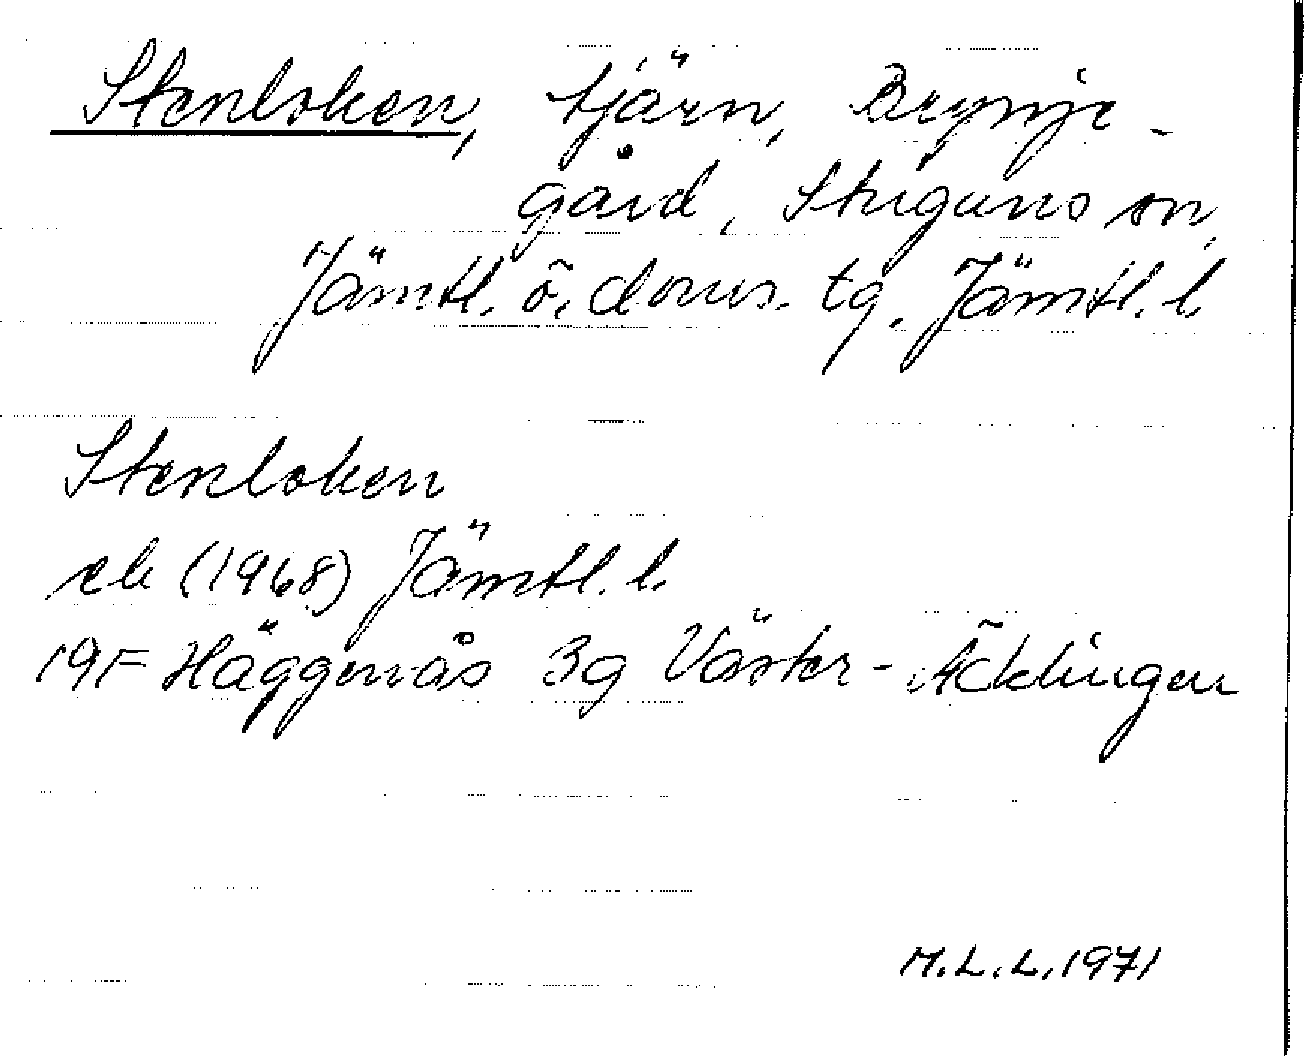 Stenloken, tjärn, Brynje-
gård, Stuguns sn,
Jämtl. ö. doms. tg. Jämtl. l.
Stenloken
ek (1968) Jämtl. l.
19F Häggenås 3g Väster-Äcklingen
M.L.L. 1971